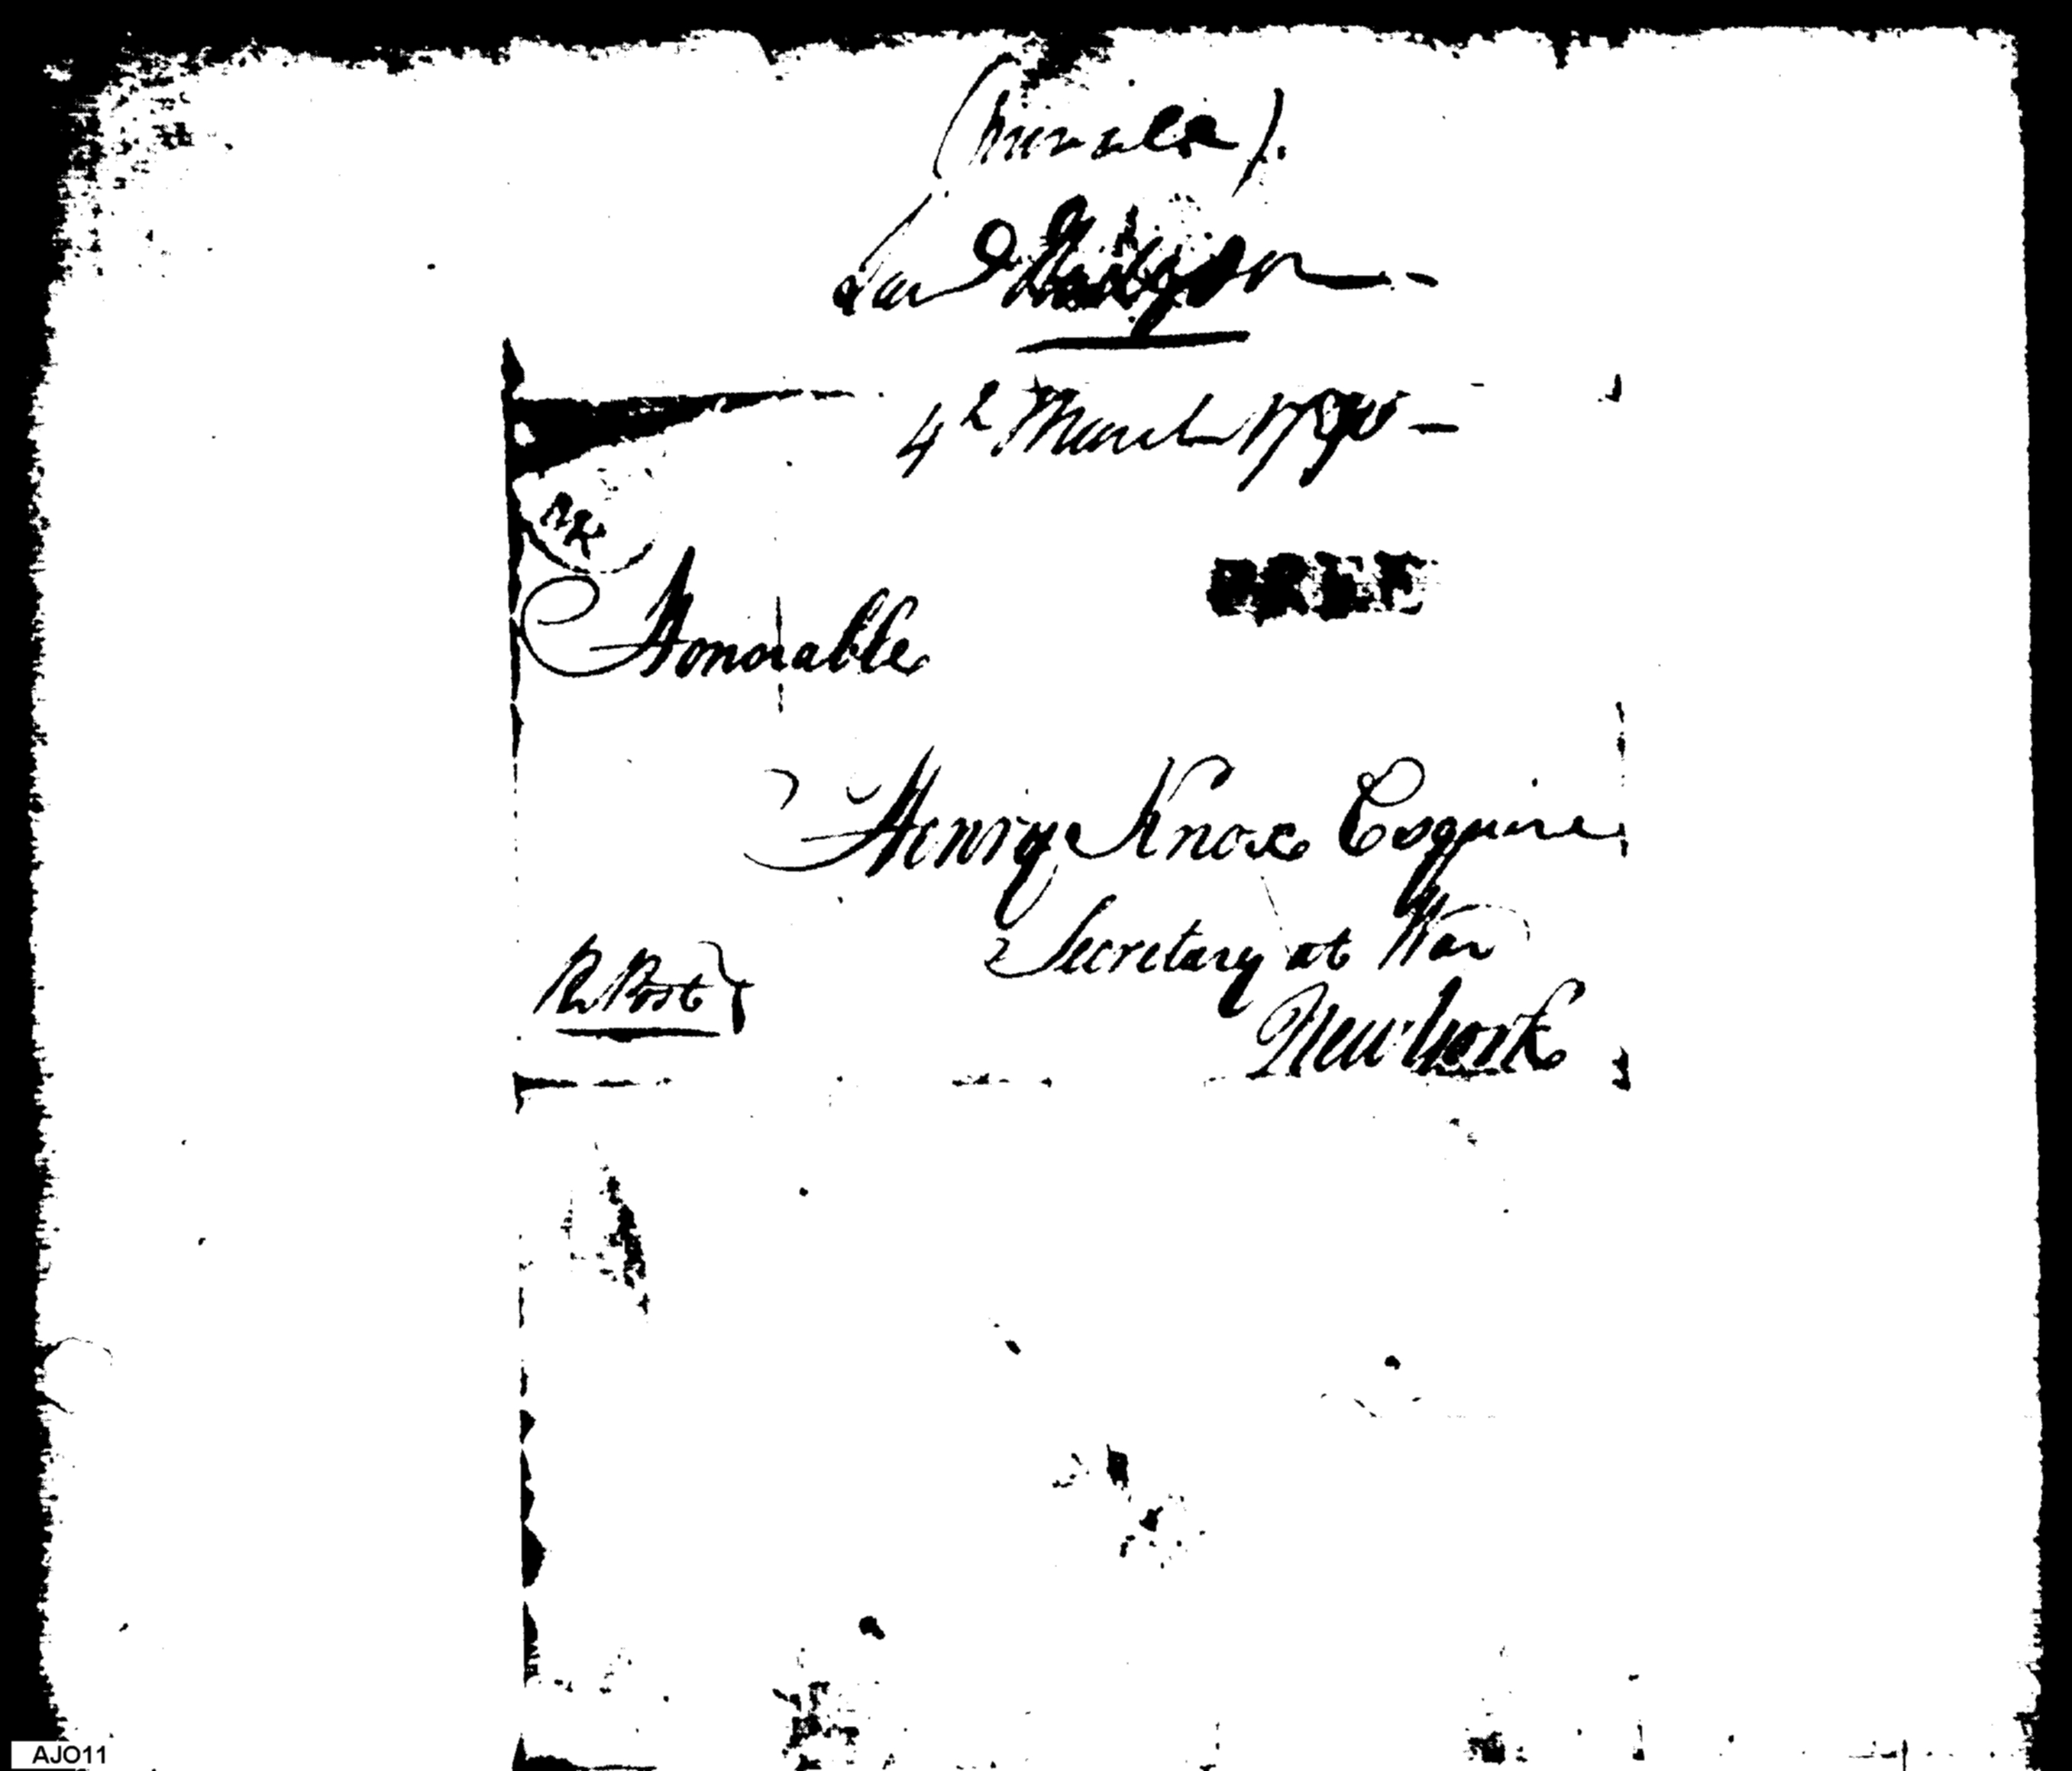 (private).
4th March 1790 —
FREE
Honorable
Henry Knox Esquire
Secretary at War
New York
P Post
AJO11